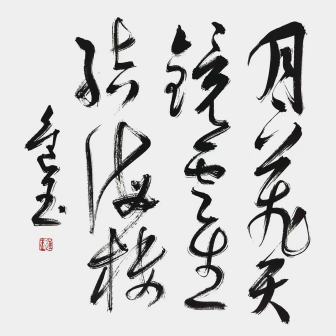 月下飛天
鏡雲生
結海樓